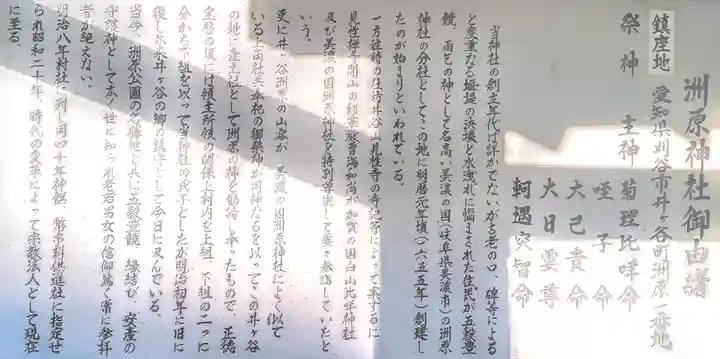 洲原神社御由緒
鎮座地 愛知県刈谷市井ヶ谷町洲原一番地
祭神 主神 菊理比咩命
蛭子命
大己貴命
大日孁尊
軻遇突智命
当神社の創立年代は詳かでないが古老の口碑等による
と度重なる堤の決壊と水洩れに悩まされた住民が五穀豊
饒、雨乞の神として名高い美濃の国(岐阜県美濃市)の洲原
神社の分社としてこの地に明暦元年頃(一六五五年)創建し
たのが始まりといわれている。
一方往時の住持井谷山見性寺の寺記等によって案ずるに
見性禅寺開山の師 海和尚が加賀の国白山比咩神社
及び美濃の国洲原神社を特別尊崇して屡々参詣していたと
いう。
更に井ヶ谷洲原の山容が美濃の国洲原神社によく似て
いる上両社共奉祀の御祭神が同神なるを以ってこの井ヶ谷
の地に産土神として洲原の神を勧請し奉ったもので、正徳
宝暦の頃には領主所領の関係上村内を上組、下組の二つに
分かち下組を以って当神社の氏子としたが明治初年に旧に
復し爾来井ヶ谷の郷の鎮守として今日に及んでいる。
当今、洲原公園の名勝地と共に五穀豊饒、縁結び、安産の
守護神として広く世に知られ老若男女の信仰篤く常に参拝
者が絶えない。
明治八年村社に列し同四十年神饌、幣帛料供進社に指定せ
られ昭和二十年、時代の変革によって宗教法人として現在
に至る。